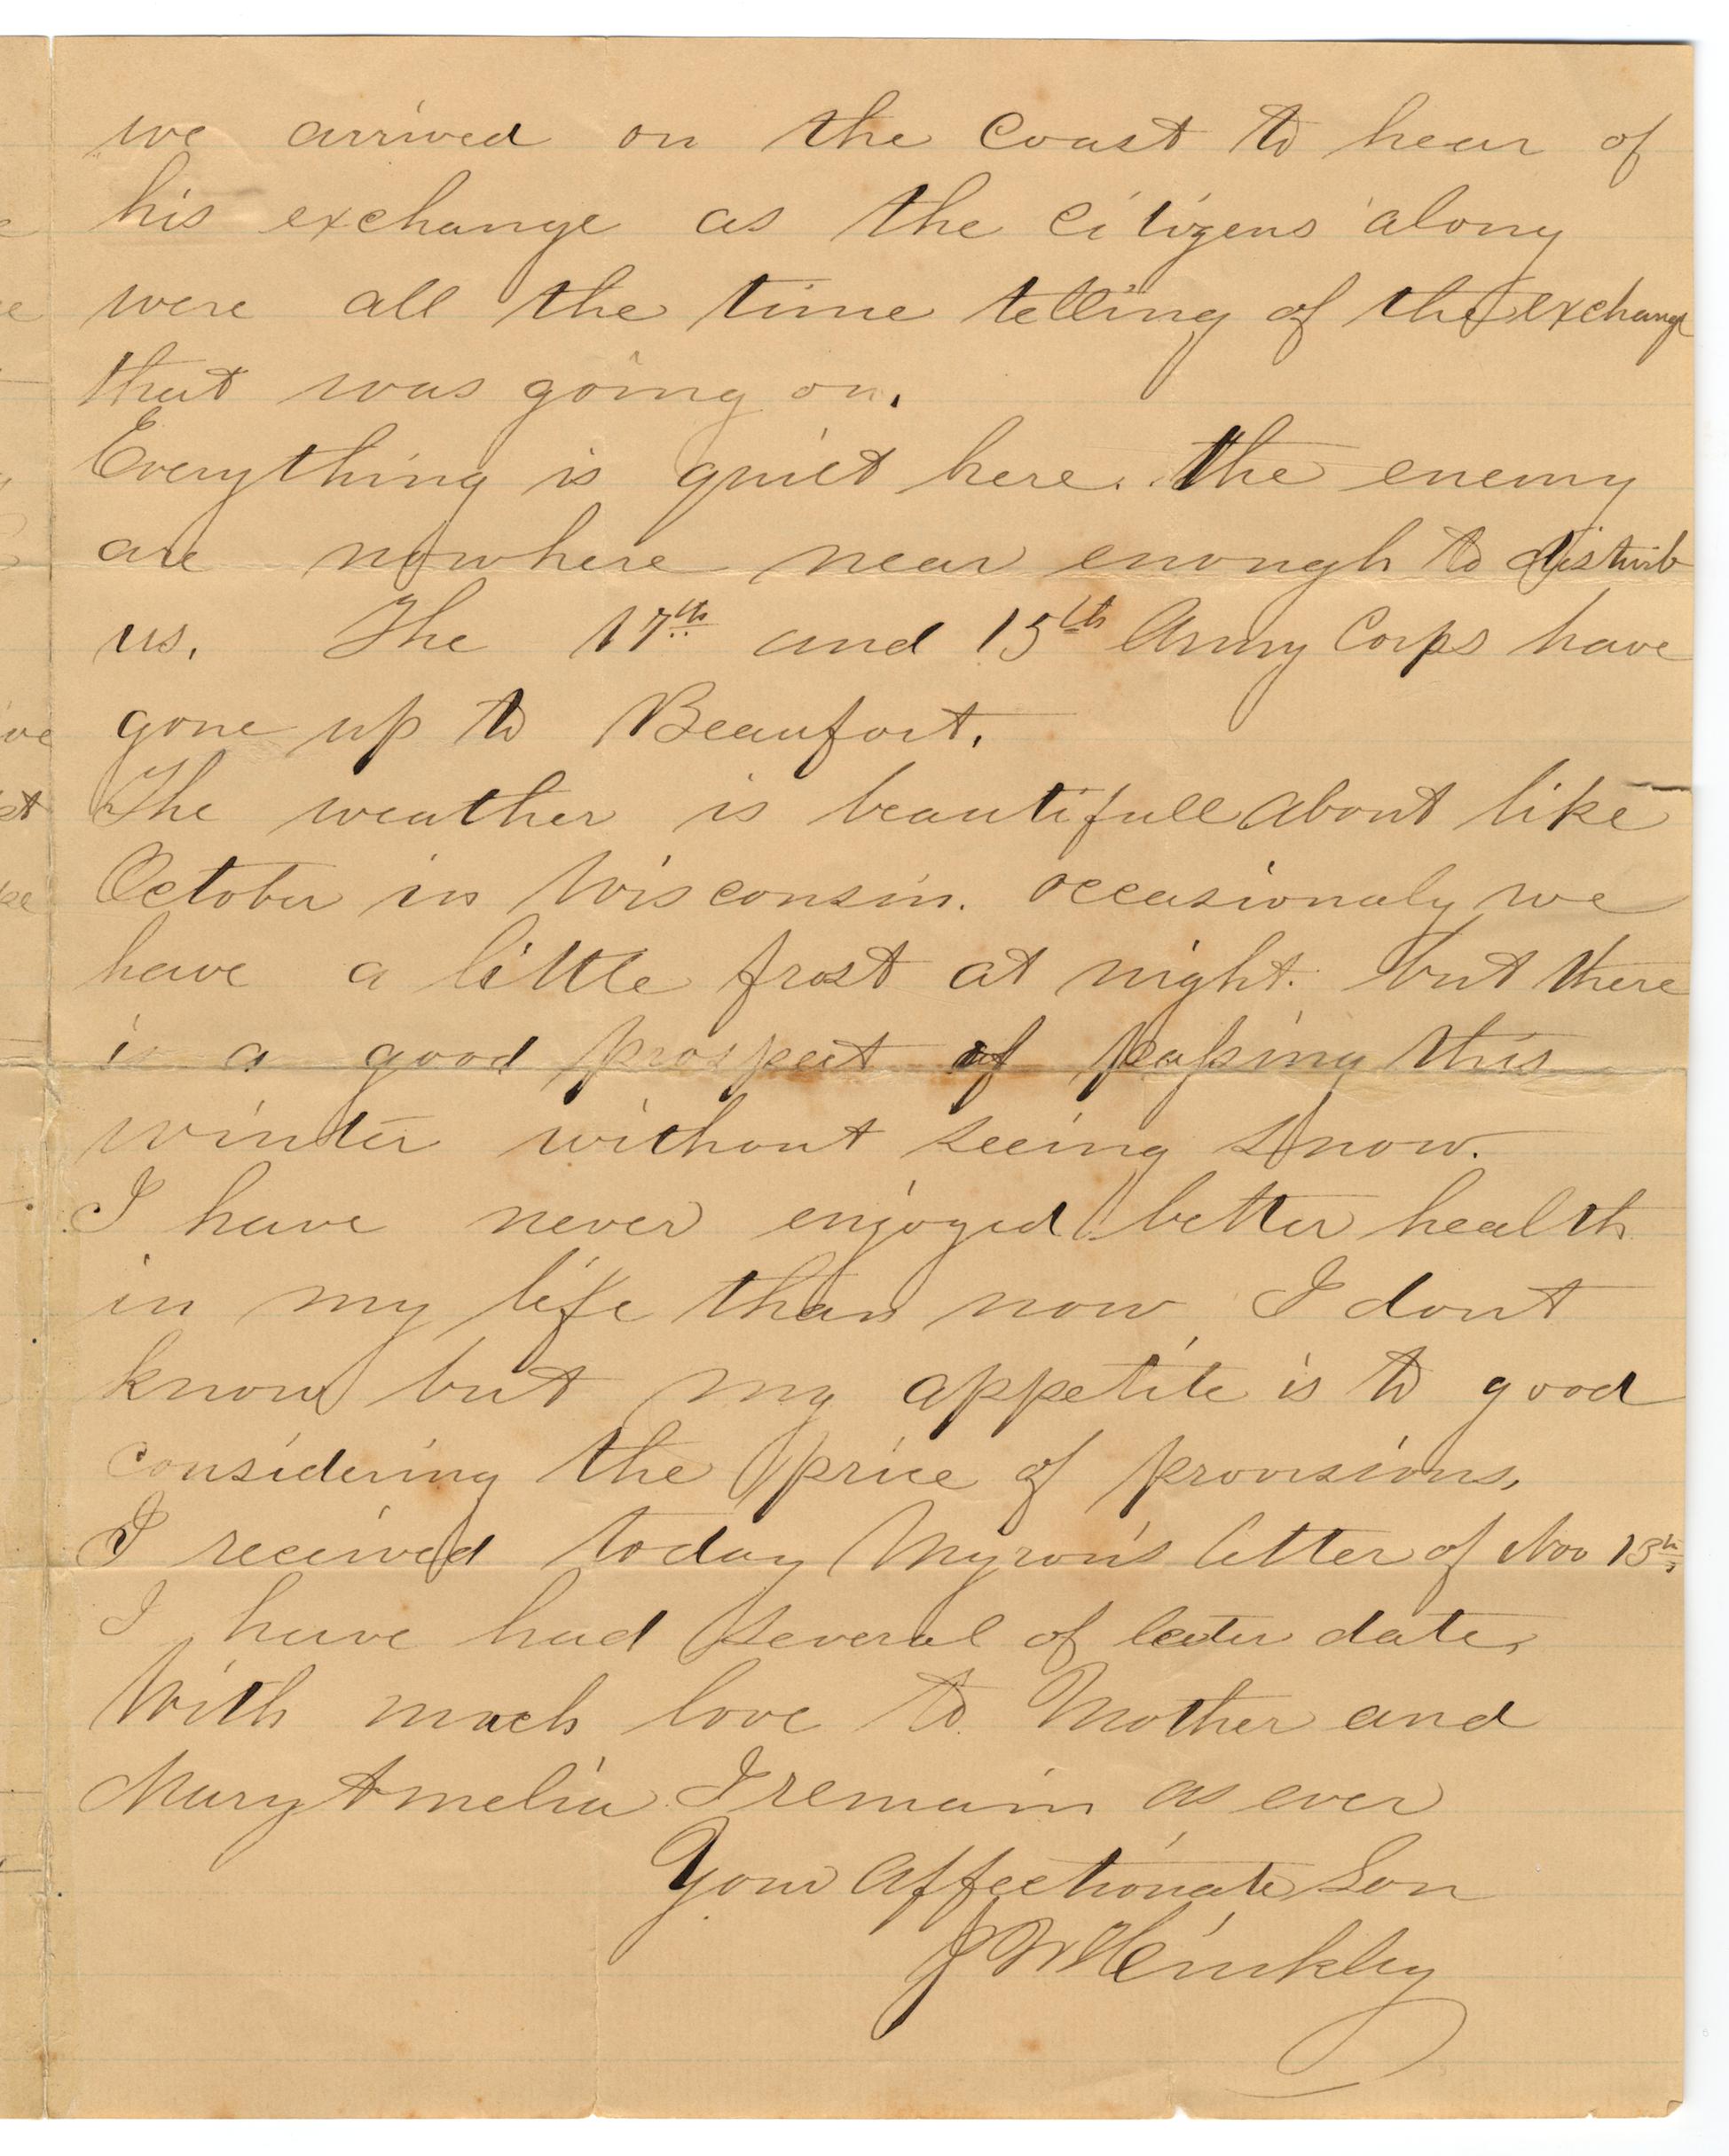 we arrived on the Coast to hear of
his exchange as the citizens along
were all the time telling of the exchange
that was going on.
Everything is quiet here. the enemy
are nowhere near enough to disturb
us. The 17th and 15th Army Corps have
gone up to Beaufort.
The weather is beautifull about like
October in Wisconsin. occasionaly we
have a little frost at night. but there
is a good prospect of passing this
winter without seeing snow.
I have never enjoyed better health
in my life than now I dont
know but my appetite is to good
considering the price of provisions,
I received today Myron's letter of Nov 13th
I have had several of later date,
With much love to Mother and
Mary Amelia I remain as ever
Your Affectionate Son
J W Hinkley